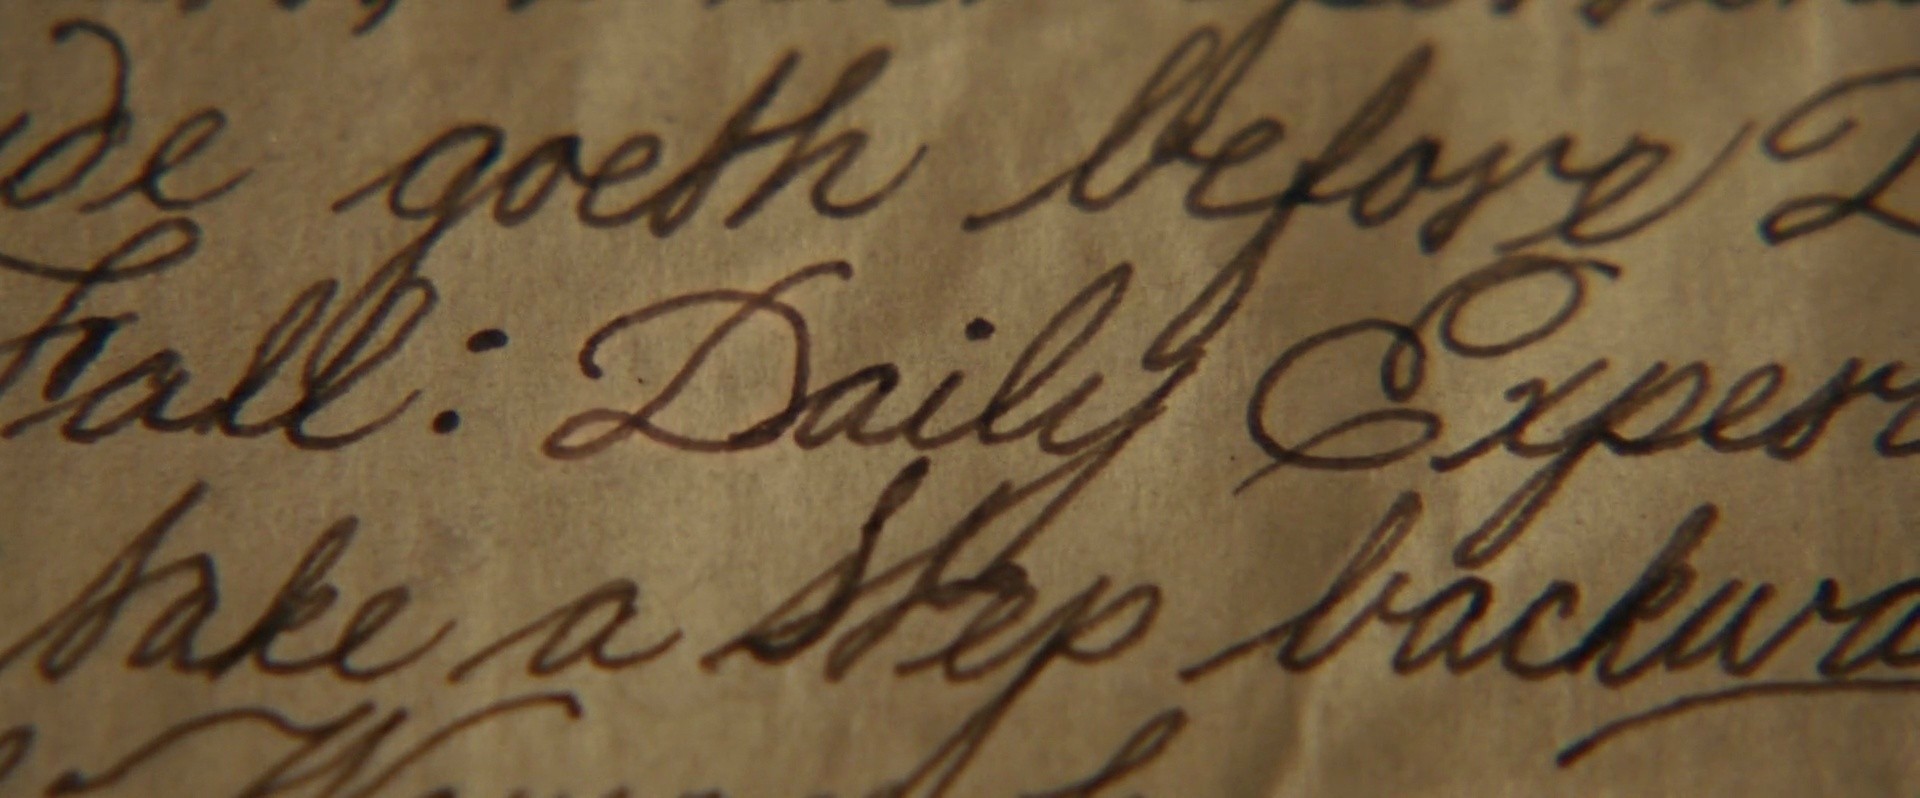 de goeth before D
Fall: Daily Exper
take a Step backwa